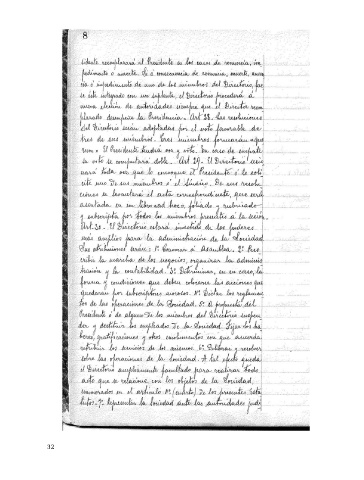 8
sidente reemplazará al Presidente en los casos de renuncia, im
pedimento o muerte. Si á consecuencia de renuncia, muerte, ausen
cia ó impedimento de uno de los miembros del Directorio, fue
se éste integrado con un suplente, el Directorio procederá á
nueva elección de autoridades siempre que el Director reem
plazado desempeñe la Presidencia. Art 28. Las resoluciones
del Directorio serán adoptadas por el voto favorable de
tres de sus miembros. Tres miembros formarán quó
rum. El Presidente tendrá voz y voto. En caso de empate
su voto se computará doble. Art 29. El Directorio sesio
nará toda vez que lo convoque el Presidente ó lo soli
cite uno de sus miembros ó el Síndico. De sus resolu
ciones se levantará el acta correspondiente, que será
asentada en un libro ad hoc, foliado y rubricado
y subscripta por todos los miembros presentes á la sesión.
Art. 30. El Directorio estará investido de los poderes
más amplios para la administración de la Sociedad.
Sus atribuciones serán: 1º 2º Pres
cribir la marcha de los negocios, organizar la adminis
tración y la contabilidad. 3º Determinar, en su caso, la
forma y condiciones que deben colocarse las acciones que
quedaran por subscripciones nuevas. 4º Dictar los reglamen
tos de las operaciones de la Sociedad. 5º á propuesta del
Presidente ó de alguno de los miembros del Directorio suspen
der y destituir los empleados de la Sociedad. Fijar los ha
beres, gratificaciones y otros emolumentos con que acuerda
retribuir los servicios de los mismos. 6º Deliberar y resolver
sobre las operaciones de la Sociedad. A tal efecto queda
el Directorio ampliamente facultado para realizar todo
acto que se relacione con los objetos de la Sociedad,
enumerados en el artículo 4º (cuarto) de los presentes Esta
tutos. 7º Representar la Sociedad ante las autoridades judi
32